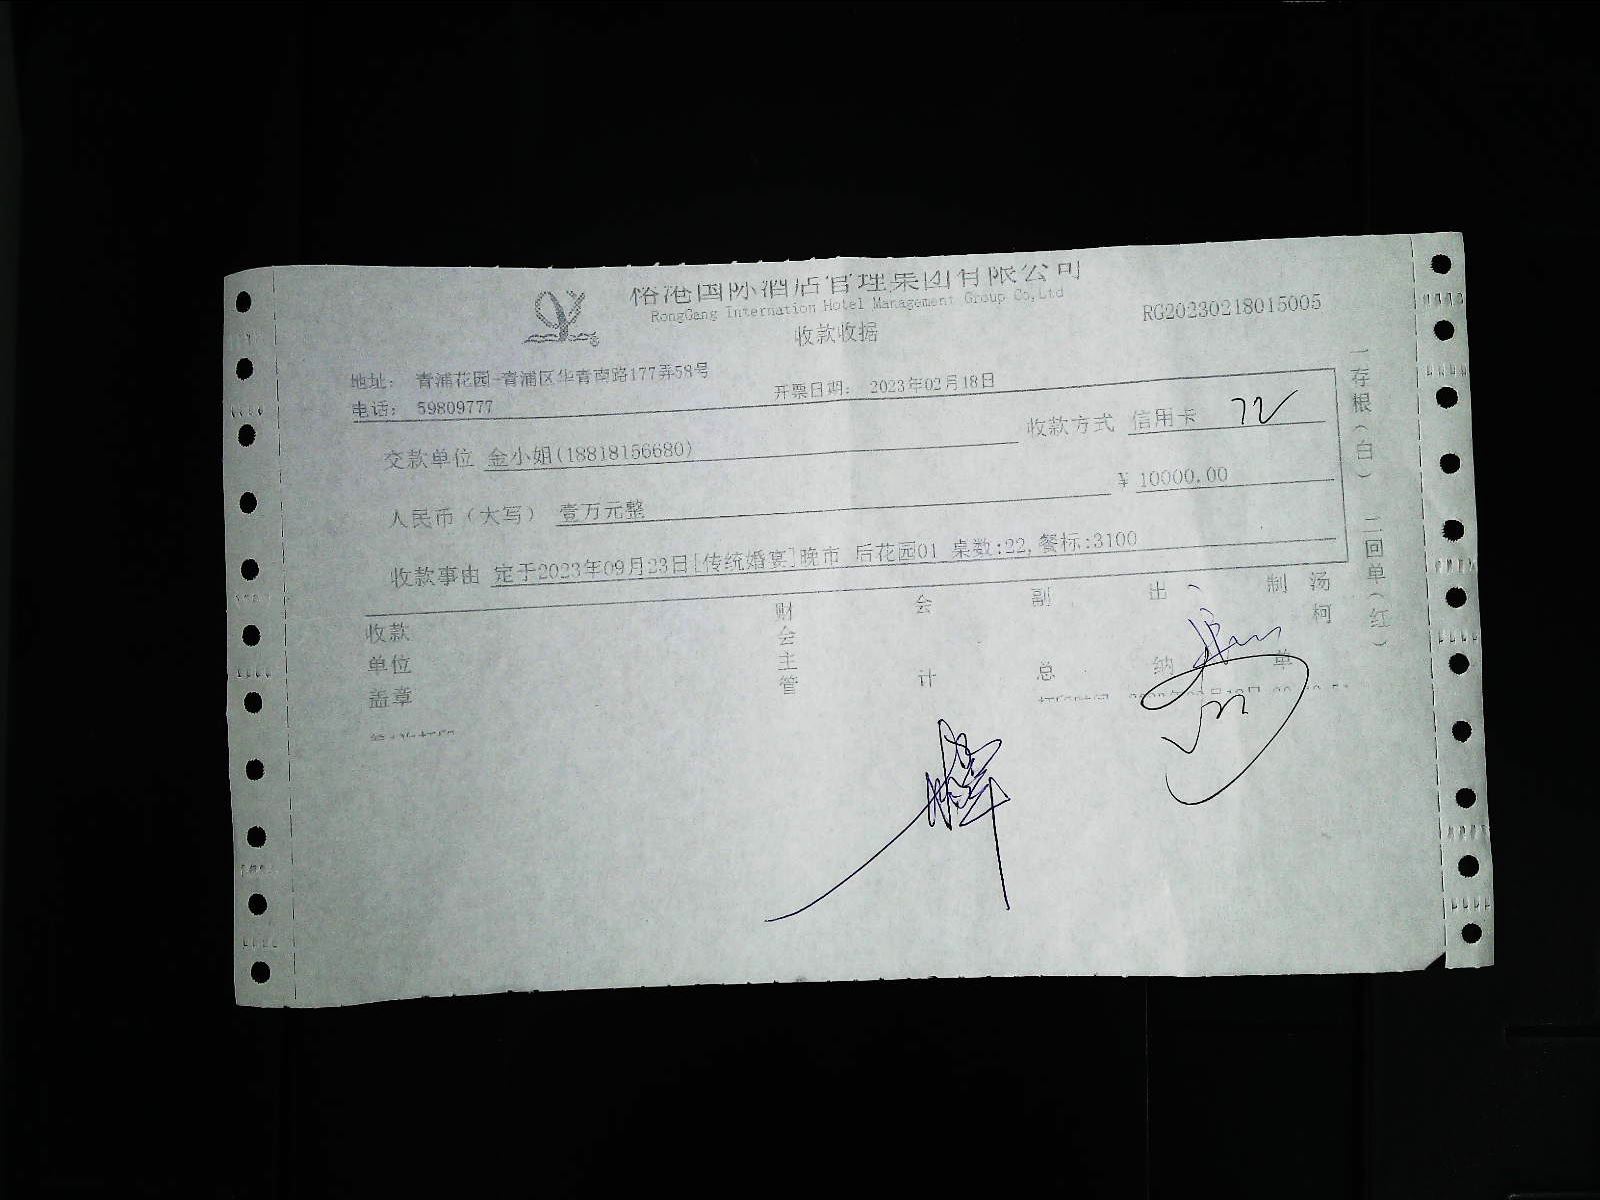 裕港国际酒店管理集团有限公司
RongGang Internation Hotel Management Group Co,Ltd
收款收据
RG20230218015005
地址： 青浦花园-青浦区华青南路177弄58号
电话： 59809777
开票日期： 2023年02月18日
交款单位 金小姐(18818156680)
收款方式 信用卡
人民币（大写） 壹万元整
¥ 10000.00
收款事由 定于2023年09月23日[传统婚宴]晚市 后花园01 桌数:22,餐标:3100
收款单位盖章
财会主管
会计
副总
出纳
制单
汤柯
一存根（白） 二回单（红）